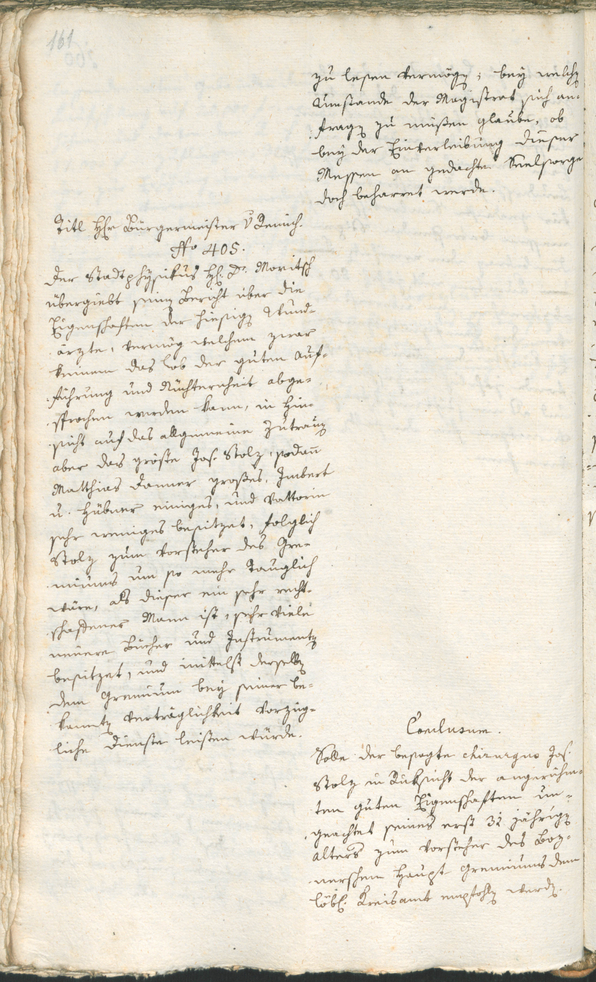 161
zu lesen vermöge; bey welchen
Umstande der Magistrat sich an-
fragen zu müßen glaube, ob
bey der Einverleibung dieser
Messen an gedachte Seelsorge
doch beharret werde.
Titl Hr Bürgermeister v Remich.
No 405.
Der Stadtphysikus H. Dr. Moritsch
übergiebt seinen Bericht über die
Eigenschaften der hiesigen Wund-
ärzte, vermög welchem zwar
keinem das Lob der guten Auf-
führung und Nüchternheit abge-
sprochen werden kann, in Hin-
sicht auf das allgemeine Zutrauen
aber das größte Jos. Stolz, sodann
Matthias Danner großes, Imbert
u. Hübner einiges, und Vattorin
sehr weniges besitzet, folglich
Stolz zum Vorsteher des Gre-
miums um so mehr tauglich
wäre, als dieser ein sehr recht-
schaffener Mann ist, sehr viele
neuere Bücher und Instrumenten
besitzet, und mittelst derselben
dem Gremium bey seiner be-
kannten Verträglichkeit vorzüg-
liche Dienste leisten würde.
Conclusum.
Solle der besagte Chirurgus Jos.
Stolz in Rücksicht der angerühm-
ten guten Eigenschaften un-
geachtet seines erst 32 jährigen
Alters zum Vorsteher des Boz-
nerschen Haupt Gremiums dem
löbl. Kreisamt empfohlen werden.